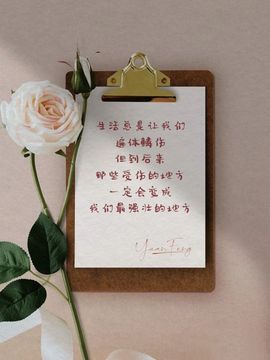 生活总是让我们
遍体鳞伤
但到后来
那些受伤的地方
一定会变成
我们最强壮的地方
YuanFeng